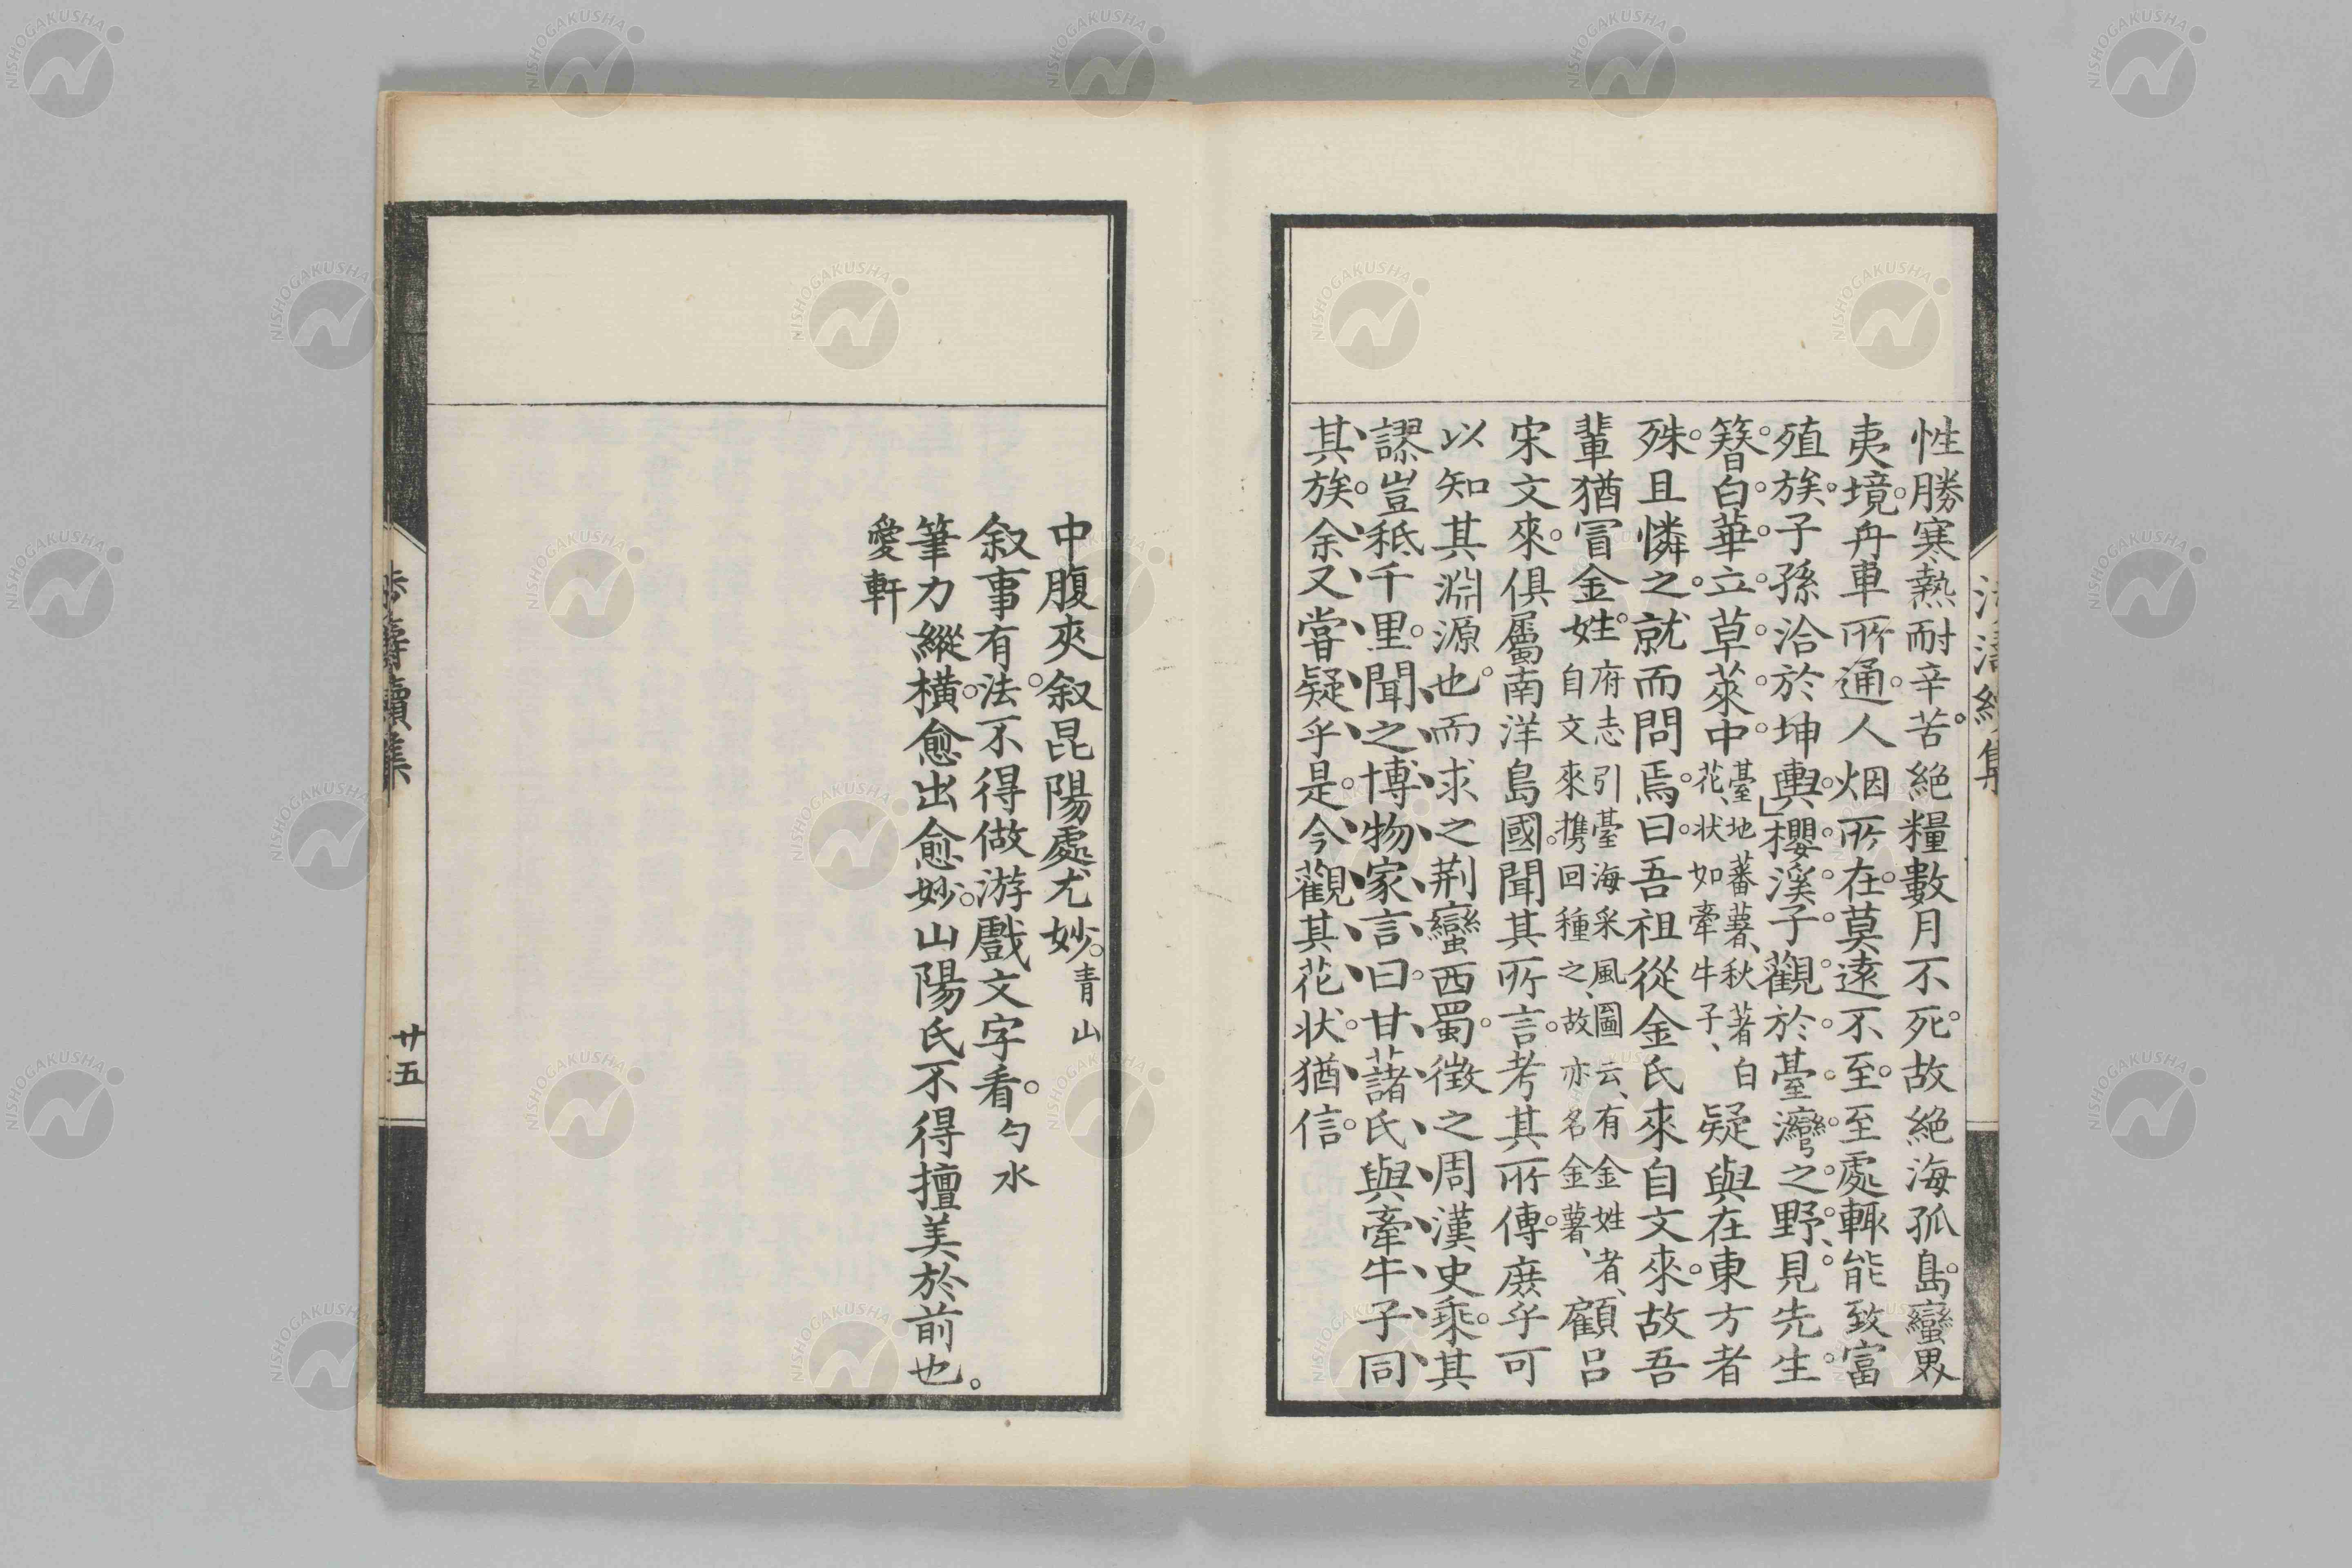 性勝寒熱耐辛苦。絕糧數月不死。故絕海孤島。蠻界
夷境。舟車所通。人烟所在。莫遠不至。至處輙能致富
殖族。子孫洽於坤輿。」櫻溪子觀於臺灣之野、見先生
簪白華立草萊中。臺地蕃薯、秋著白
花、狀如牽牛子、疑與在東方者
殊。且憐之。就而問焉。曰。吾祖從金氏來自文來。故吾
輩猶冒金姓。府志引臺海采風圖云、有金姓者、
自文來携回種之、故亦名金薯、顧呂
宋文來。俱屬南洋島國。聞其所言。考其所傳。庶乎可
以知其淵源也。而求之荆蠻西蜀。徵之周漢史乘。其
謬豈秪千里。聞之博物家言。曰。甘藷氏與牽牛子同
其族。余又嘗疑乎是。今觀其花状。猶信。
中腹夾叙昆陽處、尤妙。青山
叙事有法。不得做游戲文字看。勺水
筆力縱橫。愈出愈妙。山陽氏不得擅美於前也。
愛軒
濤續集
廿五